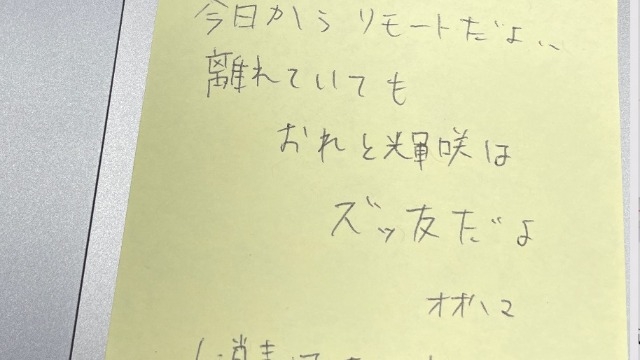 今日からリモートだよ、、
離れていても
おれと輝咲は
ズッ友だよ